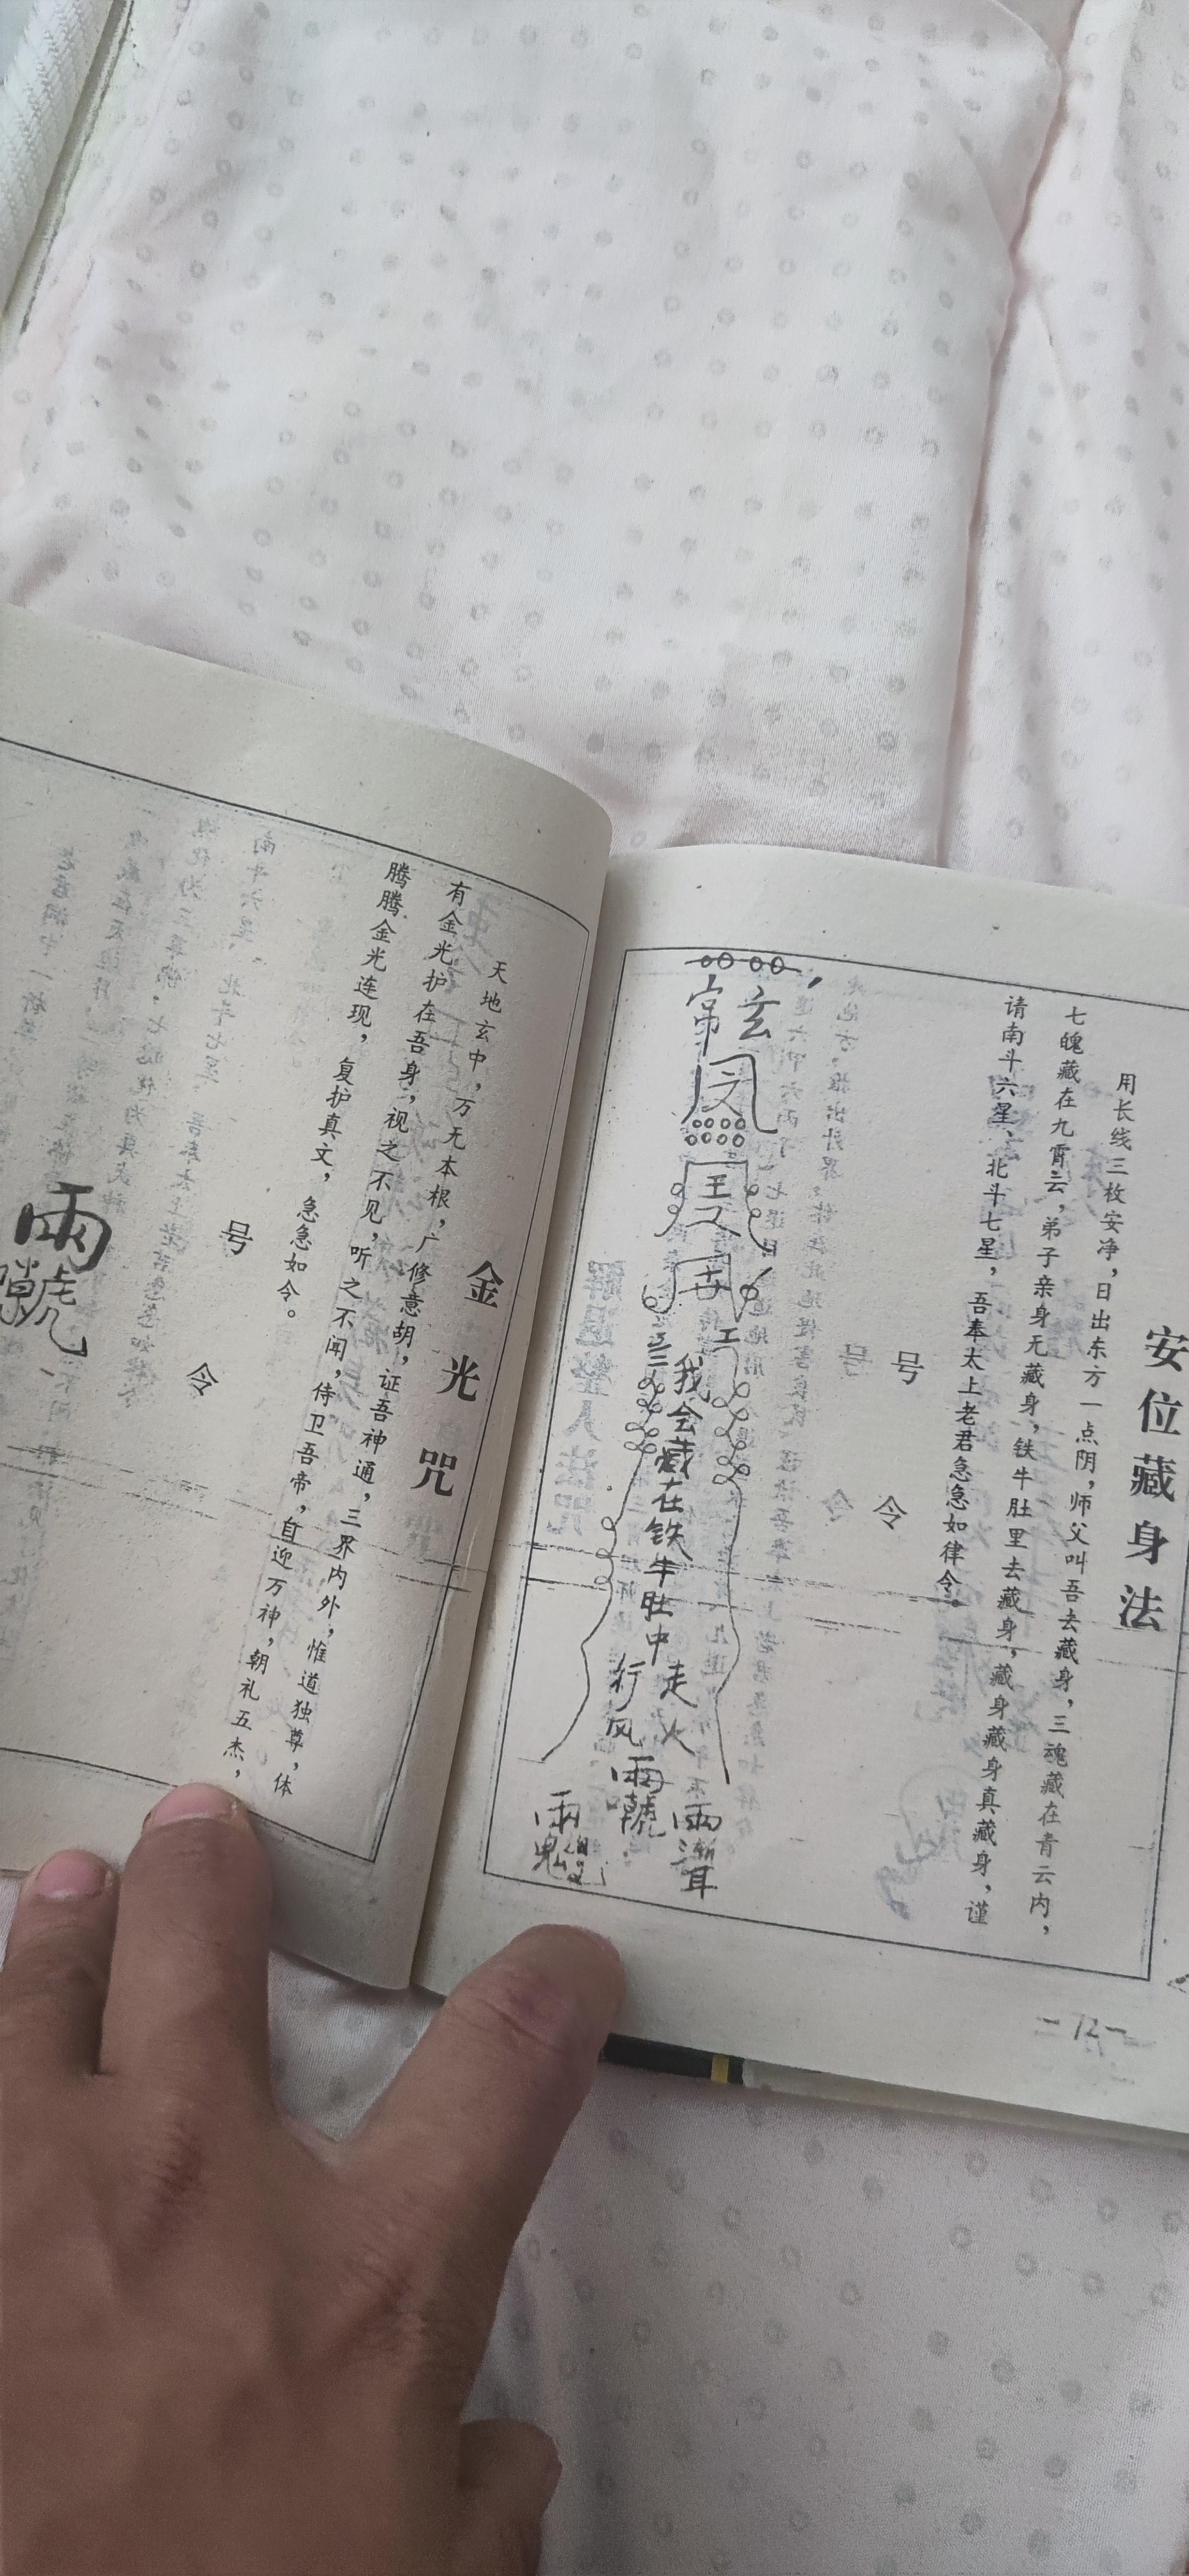 安位藏身法
用长线三枚安净，日出东方一点阴，师父叫吾去藏身，三魂藏在青云内，
七魄藏在九霄云，弟子亲身无藏身，铁牛肚里去藏身，藏身藏身真藏身，谨
请南斗六星、北斗七星，吾奉太上老君急急如律令。
号
令
玄
我会藏在铁牛肚中
走火
行风
-12-
金光咒
天地玄中，万无本根，广修意胡，证吾神通，三界内外，惟道独尊，体
有金光护在吾身，视之不见，听之不闻，侍卫吾帝，自迎万神，朝礼五杰，
腾腾金光连现，复护真文，急急如令。
号
令